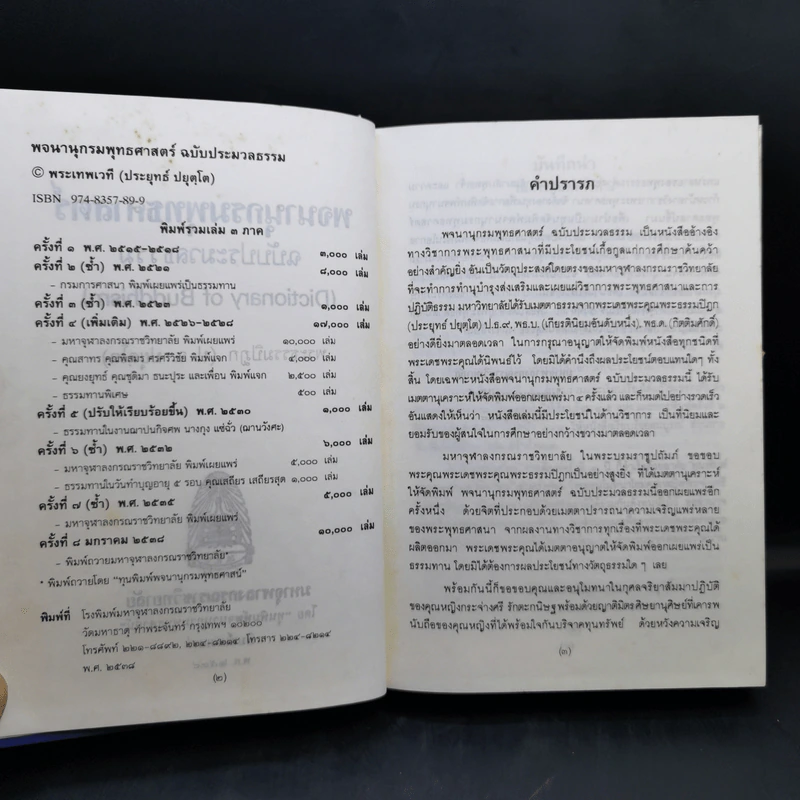 พจนานุกรมพุทธศาสตร์ ฉบับประมวลธรรม
© พระเทพเวที (ประยุทธ์ ปยุตฺโต)
ISBN 974-8357-89-9
พิมพ์รวมเล่ม ๓ ภาค
ครั้งที่ ๑ พ.ศ. ๒๕๑๕-๒๕๑๘ ๓,๐๐๐ เล่ม
ครั้งที่ ๒ (ซ้ำ) พ.ศ. ๒๕๒๑ ๘,๐๐๐ เล่ม
- กรมการศาสนา พิมพ์เผยแพร่เป็นธรรมทาน
ครั้งที่ ๓ (ซ้ำ) พ.ศ. ๒๕๒๓ ๑,๐๐๐ เล่ม
ครั้งที่ ๔ (เพิ่มเติม) พ.ศ. ๒๕๒๖-๒๕๒๘ ๑๗,๐๐๐ เล่ม
- มหาจุฬาลงกรณราชวิทยาลัย พิมพ์เผยแพร่ ๑๐,๐๐๐ เล่ม
- คุณสาทร คุณพิสมร ศรศรีวิชัย พิมพ์แจก ๔,๐๐๐ เล่ม
- คุณยงยุทธ์ คุณชุติมา ธนะปุระ และเพื่อน พิมพ์แจก ๒,๕๐๐ เล่ม
- ธรรมทานพิเศษ ๕๐๐ เล่ม
ครั้งที่ ๕ (ปรับให้เรียบร้อยขึ้น) พ.ศ. ๒๕๓๐ ๑,๐๐๐ เล่ม
- ธรรมทานในงานฌาปนกิจศพ นางกุง แซ่ฉั่ว (ฌานวังศะ)
ครั้งที่ ๖ (ซ้ำ) พ.ศ. ๒๕๓๒ ๖,๐๐๐ เล่ม
- มหาจุฬาลงกรณราชวิทยาลัย พิมพ์เผยแพร่ ๕,๐๐๐ เล่ม
- ธรรมทานในวันทำบุญอายุ ๕ รอบ คุณเสถียร เสถียรสุต ๑,๐๐๐ เล่ม
ครั้งที่ ๗ (ซ้ำ) พ.ศ. ๒๕๓๕ ๕,๐๐๐ เล่ม
- มหาจุฬาลงกรณราชวิทยาลัย พิมพ์เผยแพร่
ครั้งที่ ๘ มกราคม ๒๕๓๘ ๑๐,๐๐๐ เล่ม
- พิมพ์ถวายมหาจุฬาลงกรณราชวิทยาลัย*
* พิมพ์ถวายโดย "ทุนพิมพ์พจนานุกรมพุทธศาสน์"
พิมพ์ที่ โรงพิมพ์มหาจุฬาลงกรณราชวิทยาลัย
วัดมหาธาตุ ท่าพระจันทร์ กรุงเทพฯ ๑๐๒๐๐
โทรศัพท์ ๒๒๑-๘๘๙๒, ๒๒๔-๘๒๑๔ โทรสาร ๒๒๔-๘๒๑๔
พ.ศ. ๒๕๓๘
(๒)
คำปรารภ
พจนานุกรมพุทธศาสตร์ ฉบับประมวลธรรม เป็นหนังสืออ้างอิง
ทางวิชาการพระพุทธศาสนาที่มีประโยชน์เกื้อกูลแก่การศึกษาค้นคว้า
อย่างสำคัญยิ่ง อันเป็นวัตถุประสงค์โดยตรงของมหาจุฬาลงกรณราชวิทยาลัย
ที่จะทำการทำนุบำรุงส่งเสริมและเผยแผ่วิชาการพระพุทธศาสนาและการ
ปฏิบัติธรรม มหาวิทยาลัยได้รับเมตตาธรรมจากพระเดชพระคุณพระธรรมปิฎก
(ประยุทธ์ ปยุตฺโต) ป.ธ.๙, พธ.บ.(เกียรตินิยมอันดับหนึ่ง), พธ.ด.(กิตติมศักดิ์)
อย่างดียิ่งมาตลอดเวลา ในการกรุณาอนุญาตให้จัดพิมพ์หนังสือทุกชนิดที่
พระเดชพระคุณได้นิพนธ์ไว้ โดยมิได้คำนึงถึงผลประโยชน์ตอบแทนใดๆ ทั้ง
สิ้น โดยเฉพาะหนังสือพจนานุกรมพุทธศาสตร์ ฉบับประมวลธรรมนี้ ได้รับ
เมตตานุเคราะห์ให้จัดพิมพ์ออกเผยแพร่มา ๔ ครั้งแล้ว และก็หมดไปอย่างรวดเร็ว
อันแสดงให้เห็นว่า หนังสือเล่มนี้มีประโยชน์ในด้านวิชาการ เป็นที่นิยมและ
ยอมรับของผู้สนใจในการศึกษาอย่างกว้างขวางมาตลอดเวลา
มหาจุฬาลงกรณราชวิทยาลัย ในพระบรมราชูปถัมภ์ ขอขอบ
พระคุณพระเดชพระคุณพระธรรมปิฎกเป็นอย่างสูงยิ่ง ที่ได้เมตตานุเคราะห์
ให้จัดพิมพ์ พจนานุกรมพุทธศาสตร์ ฉบับประมวลธรรมนี้ออกเผยแพร่อีก
ครั้งหนึ่ง ด้วยจิตที่ประกอบด้วยเมตตาปรารถนาความเจริญแพร่หลาย
ของพระพุทธศาสนา จากผลงานทางวิชาการทุกเรื่องที่พระเดชพระคุณได้
ผลิตออกมา พระเดชพระคุณได้เมตตาอนุญาตให้จัดพิมพ์ออกเผยแพร่เป็น
ธรรมทาน โดยมิได้ต้องการผลประโยชน์ทางวัตถุธรรมใด ๆ เลย
พร้อมกันนี้ก็ขอขอบคุณและอนุโมทนาในกุศลจริยาสัมมาปฏิบัติ
ของคุณหญิงกระจ่างศรี รักตะกนิษฐ พร้อมด้วยญาติมิตรศิษยานุศิษย์ที่เคารพ
นับถือของคุณหญิงที่ได้พร้อมใจกันบริจาคทุนทรัพย์ ด้วยหวังความเจริญ
(๓)